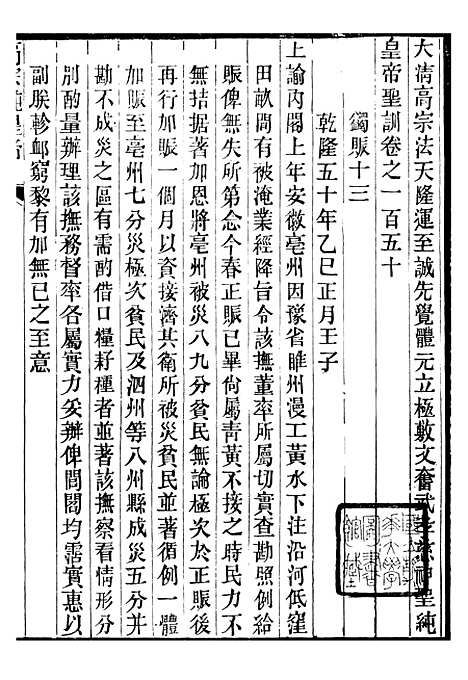 大清高宗法天隆運至誠先覺體元立極敷文奮武孝慈神聖純
皇帝聖訓卷之一百五十
蠲賑十三
乾隆五十年乙巳正月壬子
上諭內閣上年安徽亳州因豫省睢州漫工黃水下注沿河低窪
田畝間有被淹業經降旨令該撫董率所屬切實查勘照例給
賑俾無失所第念今春正賑已畢尙屬靑黃不接之時民力不
無拮据著加恩將亳州被災八九分貧民無論極次正賑後
再行加賑一個月以資接濟其衛所被災貧民並著循例一體
加賑至亳州七分災極次貧民及泗州等八州縣成災五分并
勘不成災之區有需酌借口糧耔種者並著該撫察看情形分
別酌量辦理該撫務督率各屬實力妥辦俾閭閻均霑實惠以
副朕軫卹窮黎有加無已之至意